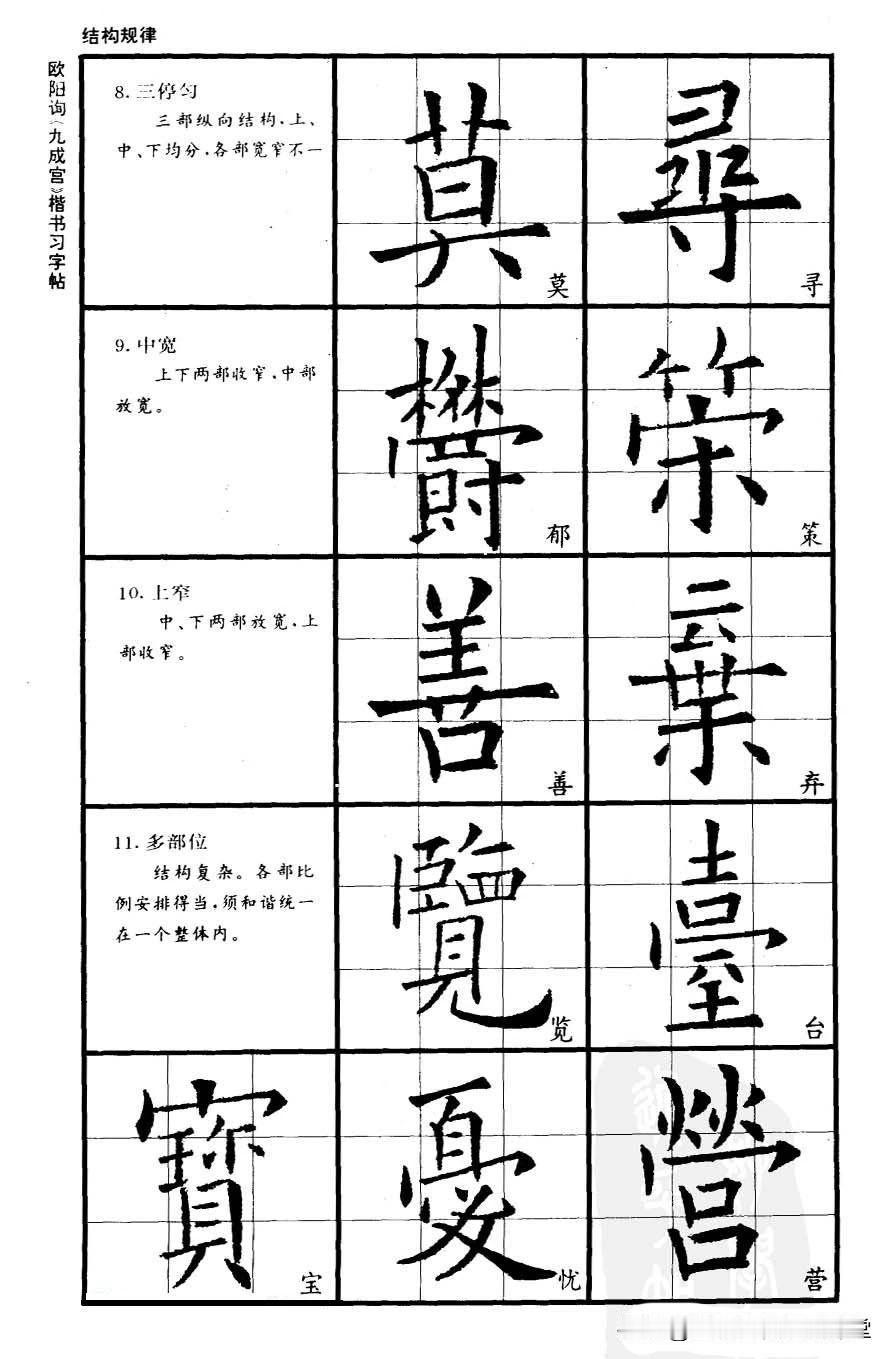 结构规律
欧阳询《九成宫》楷书习字帖
8. 三停匀
三部纵向结构，上、
中、下均分，各部宽窄不一
莫
莫
尋
寻
9. 中宽
上下两部收窄，中部
放宽。
欝
郁
策
策
10. 上窄
中、下两部放宽，上
部收窄。
善
善
棄
弃
11. 多部位
结构复杂。各部比
例安排得当，须和谐统一
在一个整体内。
覽
览
臺
台
寶
宝
憂
忧
營
营